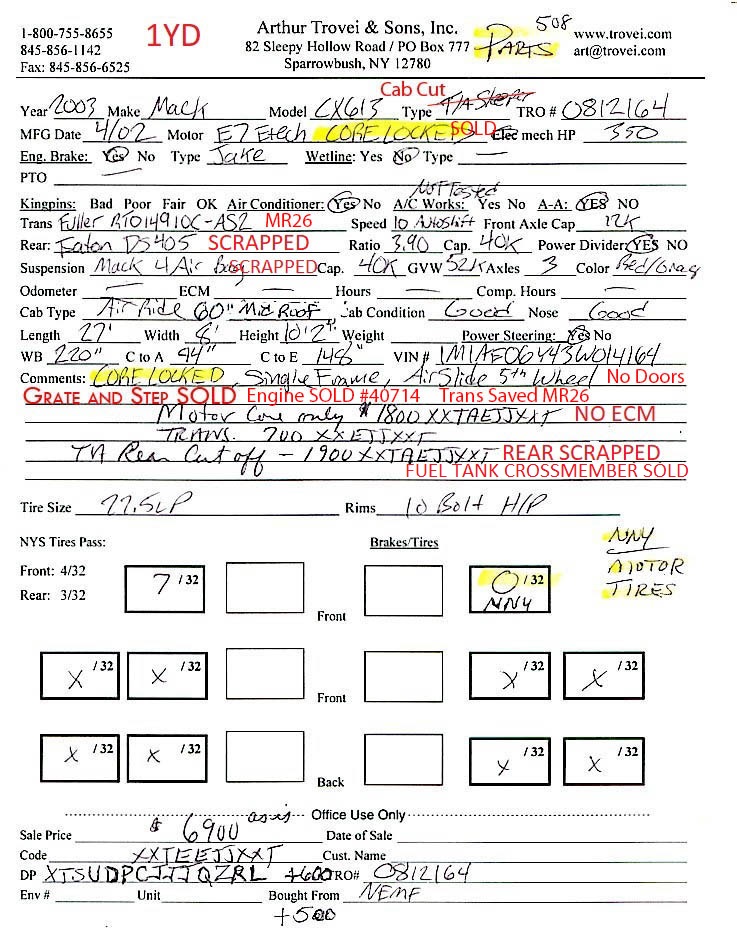 1-800-755-8655
845-856-1142
Fax: 845-856-6525
1YD
Arthur Trovei & Sons, Inc.
82 Sleepy Hollow Road / PO Box 777
Sparrowbush, NY 12780
508
PARTS
www.trovei.com
art@trovei.com
Cab Cut
Year 2003 Make Mack Model CX613 Type T/A Sleeper TRO # 0812164
MFG Date 4/02 Motor E7 Etech CORE LOCKED SOLD Elec mech HP 350
Eng. Brake: Yes No Type Jake Wetline: Yes No Type —
PTO —
Not Tested
Kingpins: Bad Poor Fair OK Air Conditioner: Yes No A/C Works: Yes No A-A: YES NO
Trans Fuller RTO14910C-AS2 MR26 Speed 10 Autoshift Front Axle Cap 12K
Rear: Eaton DS405 SCRAPPED Ratio 3.90 Cap. 40K Power Divider: YES NO
Suspension Mack 4 Air Bag SCRAPPED Cap. 40K GVW 52K Axles 3 Color Red/Gray
Odometer — ECM — Hours — Comp. Hours —
Cab Type Air Ride 60" Mid Roof Cab Condition Good Nose Good
Length 27' Width 8' Height 10'2" Weight Power Steering: Yes No
WB 220" C to A 94" C to E 148" VIN # 1M1AE06Y43W014164
Comments: CORE LOCKED, Single Frame, Air Slide 5th Wheel No Doors
GRATE AND STEP SOLD Engine SOLD #40714 Trans Saved MR26
Motor Core only $1800 XXTAEJJXXT NO ECM
TRANS. 700 XXEJJXXT
T/A Rear Cut off - 1900 XXTAEJJXXT REAR SCRAPPED
FUEL TANK CROSSMEMBER SOLD
Tire Size 22.5LP Rims 10 Bolt H/P
NYS Tires Pass: Brakes/Tires
NNY
MOTOR
TIRES
Front: 4/32
Rear: 3/32
7 /32 0 /32
NNY
Front
X /32 X /32 X /32 X /32
Front
X /32 X /32 X /32 X /32
Back
Office Use Only
Sale Price $ 6900 as is Date of Sale
Code XXTEEJJXXT Cust. Name
DP XTSUDPCJJJQZRL +600 TRO# 0812164
Env # Unit Bought From NEMF
+500